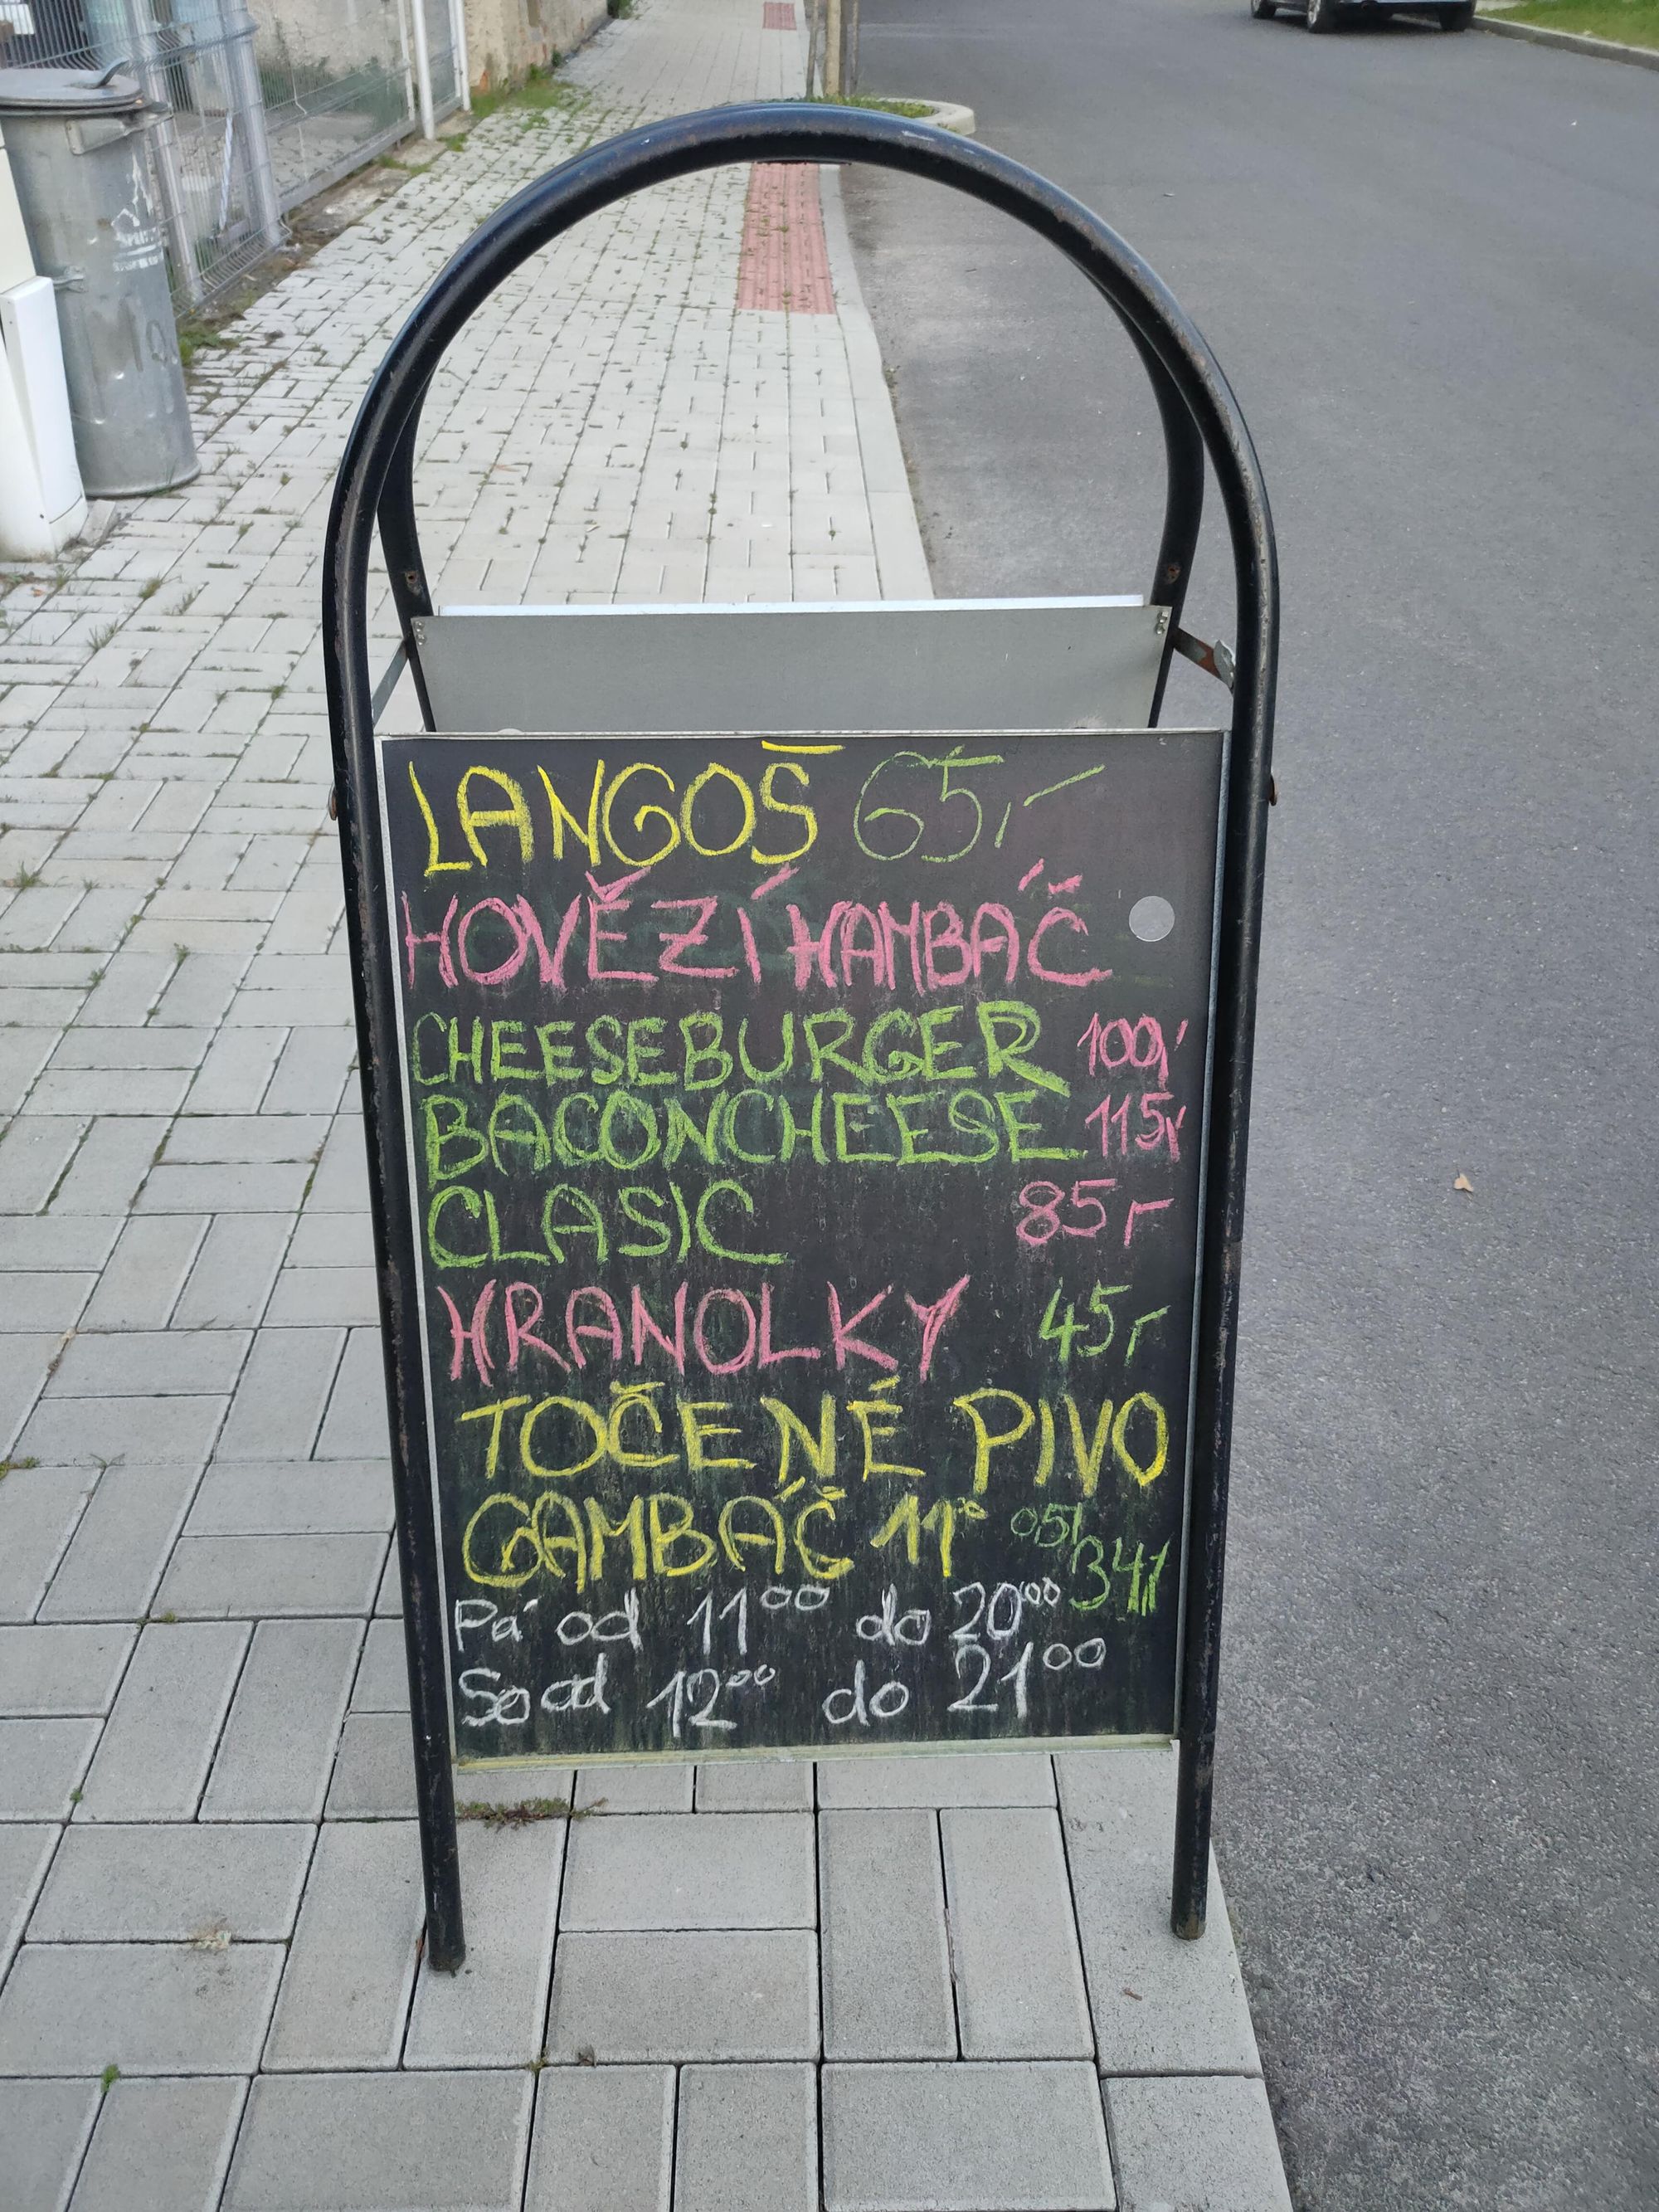 LANGOŠ 65,-
HOVĚZÍ HAMBÁČ
CHEESEBURGER 100,-
BACONCHEESE 115,-
CLASIC 85,-
HRANOLKY 45,-
TOČENÉ PIVO
GAMBÁČ 11° 0,5l 34,-
Pá od 11⁰⁰ do 20⁰⁰
So od 12⁰⁰ do 21⁰⁰